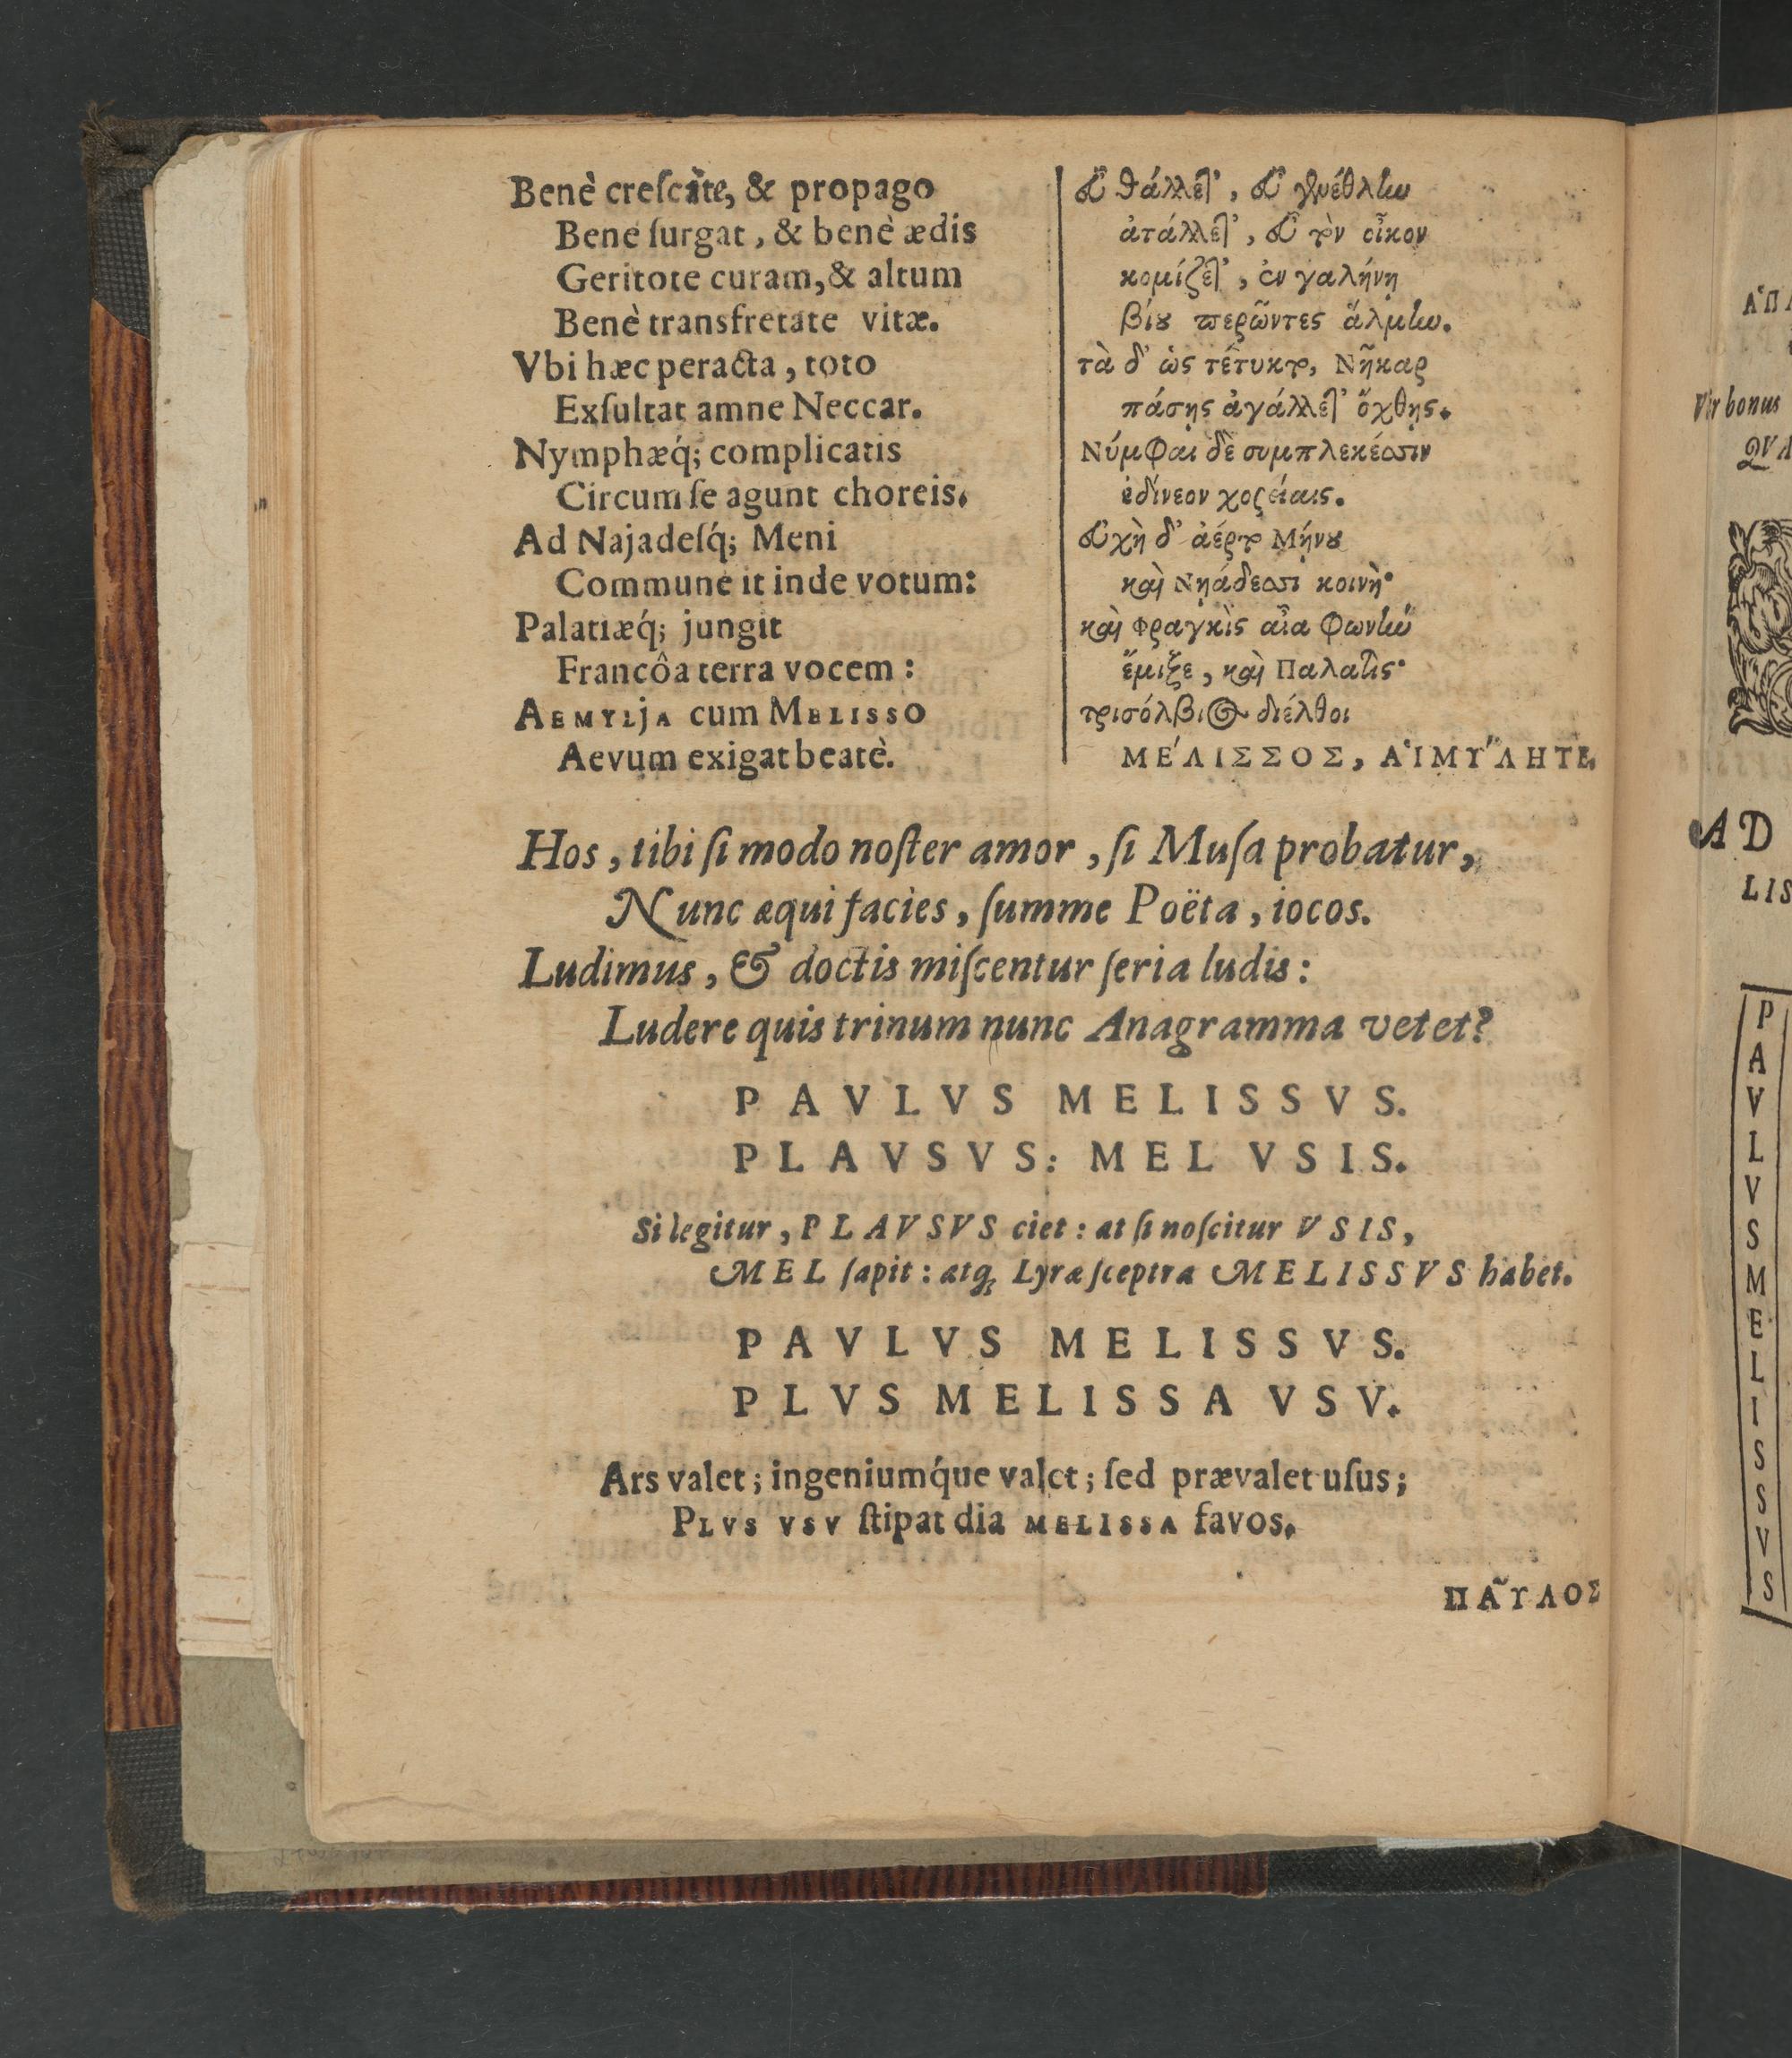 Benè creſcàte, & propago
Bene ſurgat, & benè ædis
Geritote curam, & altum
Benè transfretate vitæ.
Vbi hæc peracta, toto
Exſultat amne Neccar.
Nymphæq́; complicatis
Circum ſe agunt choreis.
Ad Najadeſq́; Meni
Commune it inde votum:
Palatiæq́; jungit
Francôa terra vocem:
AEMYLjA cum MELISSO
Aevum exigat beatè.
εὖ θάλλετ', εὖ γενέθλην
ἀτάλλετ', εὖ τὸν οἶκον
κομίζετ', ἐν γαλήνῃ
βίȣ περῶντες ἅλμην.
τὰ δ' ὡς τέτυκτο, Νῆκαρ
πάσῃς ἀγάλλετ' ὄχθῃς.
Νύμφαι δὲ συμπλεκέσσιν
ἐδίνεον χορείαις.
εὐχὴ δ' ἀέρτο Μήνȣ
καὶ Νηάδεσσι κοινὴ·
καὶ Φραγκὶς αἶα φωνὴν
ἔμιξε, καὶ Παλατὶς·
τρισόλβιος διέλθοι
ΜΕ´ΛΙΣΣΟΣ, ΑἸΜΥ´ΛΗ ΤΕ.
Hos, tibi ſi modo noſter amor, ſi Muſa probatur,
Nunc æqui facies, ſumme Poëta, iocos.
Ludimus, & doctis miſcentur ſeria ludis:
Ludere quis trinum nunc Anagramma vetet?
PAVLVS MELISSVS.
PLAVSVS: MEL VSIS.
Si legitur, PLAVSVS ciet: at ſi noſcitur VSIS,
MEL ſapit: atq; Lyræ ſceptra MELISSVS habet.
PAVLVS MELISSVS.
PLVS MELISSA VSV.
Ars valet; ingeniumq́ue valet; ſed prævalet uſus;
PLVS VSV ſtipat dia MELISSA favos.
ΠΑ͂ΥΛΟΣ
Vir bonus
AD
LIS
P
A
V
L
V
S
M
E
L
I
S
S
V
S